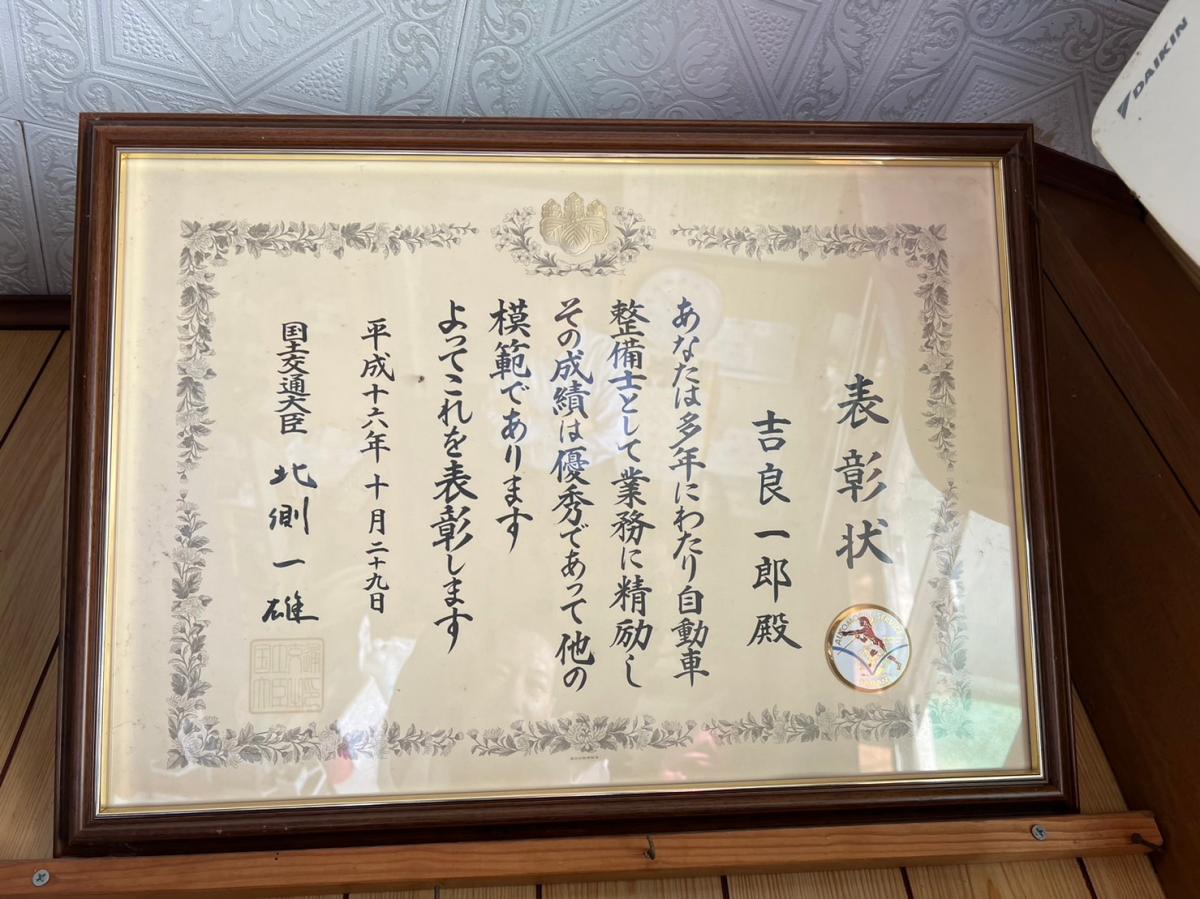 表彰状
吉良一郎殿
あなたは多年にわたり自動車
整備士として業務に精励し
その成績は優秀であって他の
模範であります
よってこれを表彰します
平成十六年十月二十九日
国土交通大臣 北側一雄
DAIKIN